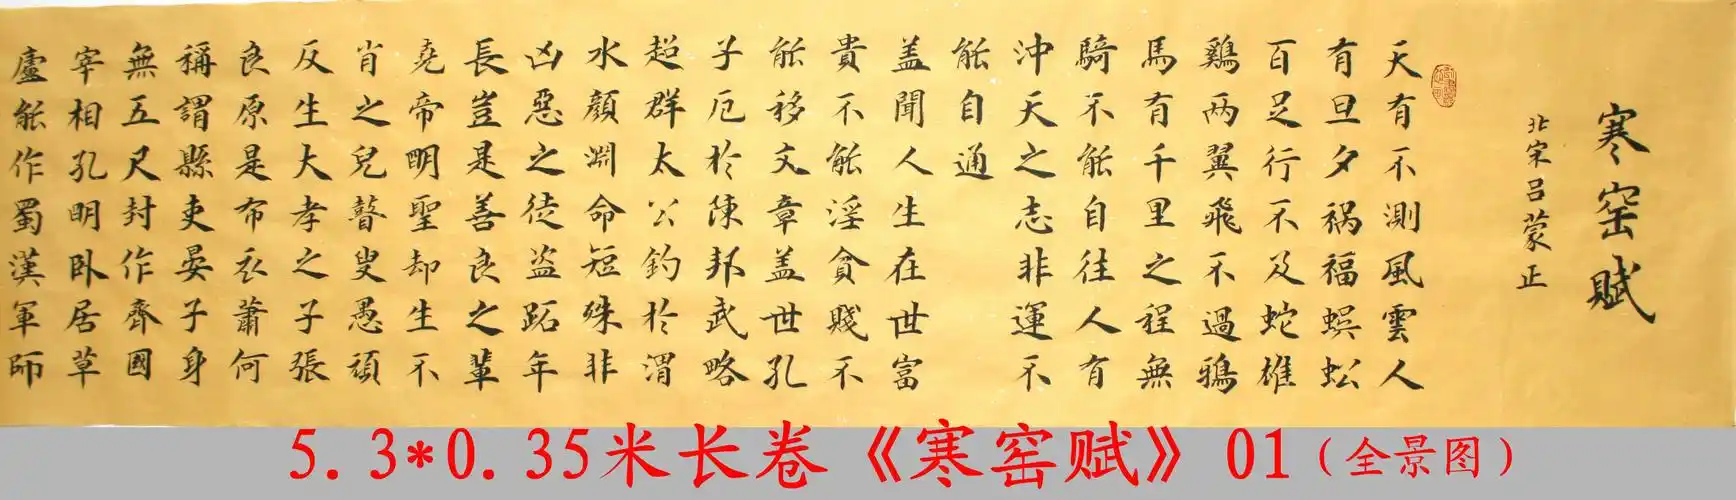 寒窑赋
北宋吕蒙正
天有不測風雲人
有旦夕祸福蜈蚣
百足行不及蛇雄
鷄两翼飛不過鴉
馬有千里之程無
騎不能自往人有
沖天之志非運不
能自通
盖聞人生在世富
貴不能淫貧賤不
能移文章盖世孔
子厄於陳邦武略
超群太公釣於渭
水顔淵命短殊非
凶惡之徒盗跖年
長豈是善良之輩
堯帝明聖却生不
肖之兒瞽叟愚頑
反生大孝之子張
良原是布衣蕭何
稱謂縣吏晏子身
無五尺封作齊國
宰相孔明卧居草
廬能作蜀漢軍師
5.3*0.35米长卷《寒窑赋》01(全景图)